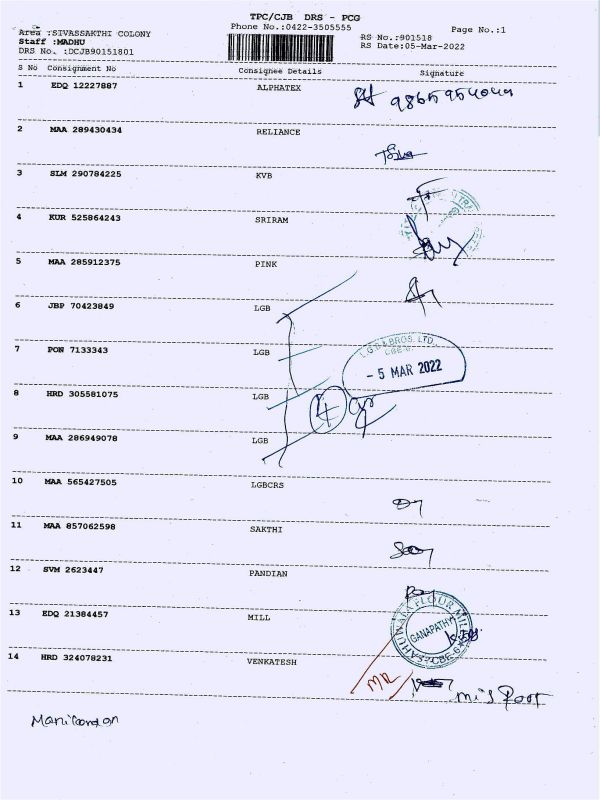 TPC/CJB DRS - PCG
Phone No.:0422-3505555
Page No.:1
Area :SIVASSAKTHI COLONY
Staff :MADHU
DRS No. :DCJB90151801
RS No.:901518
RS Date:05-Mar-2022
S No Consignment No Consignee Details Signature
1 EDQ 12227887 ALPHATEX
2 MAA 289430434 RELIANCE
3 SLM 290784225 KVB
4 KUR 525864243 SRIRAM
5 MAA 285912375 PINK
6 JBP 70423849 LGB
7 PON 7133343 LGB
L.G.B & BROS. LTD.
- 5 MAR 2022
8 HRD 305581075 LGB
4
9 MAA 286949078 LGB
10 MAA 565427505 LGBCRS
11 MAA 857062598 SAKTHI
12 SVM 2623447 PANDIAN
13 EDQ 21384457 MILL
FLOUR MILL
GANAPATHY
14 HRD 324078231 VENKATESH
MR